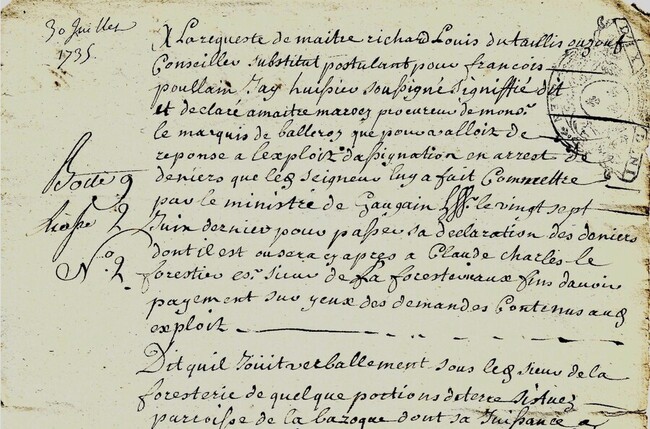 30 Juillet
1735.
A La requeste de maitre richard Louis du taillis
Conseiller substitut postulant pour francois
poullain Jay huissier soussigné signiffié dit
et declaré a maitre procureur de monsr
le marquis de balleroy que pour valloir de
reponse a lexploit dassignation en arrest de
deniers que led seigneur luy a fait Commettre
par le ministre de Gaugain le vingt sept
Juin dernier pour passer sa declaration des deniers
dont il est ou sera cy apres a Claude charles le
forestier esr sieur de la foresterie aux fins davoir
payement sur yeux des demandes Contenus aud
exploit
Boete 9
Liasse 2
No. 2
Dit quil Jouit verballement sous led sieur de la
foresterie de quelque portions de terre sistuez
parroisse de la bazoque dont sa Juissance a